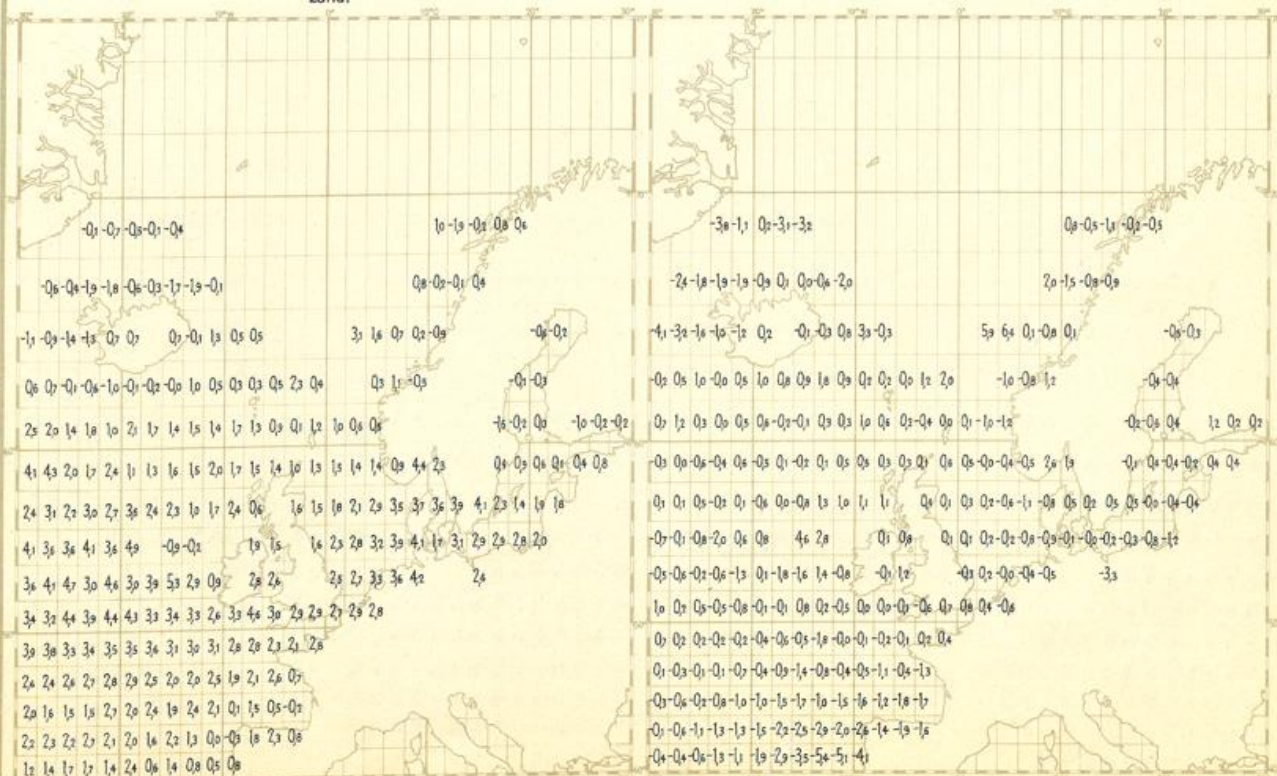 -0,1 -0,7 -0,5 -0,1 -0,4 1,0 -1,9 -0,2 0,8 0,6
-0,6 -0,4 -1,9 -1,8 -0,6 -0,3 -1,7 -1,9 -0,1 0,8 -0,2 -0,1 0,4
-1,1 -0,9 -1,4 -1,3 0,7 0,7 0,7 -0,1 1,3 0,5 0,5 3,1 1,6 0,7 0,2 -0,9 -0,6 -0,2
0,6 0,7 -0,1 -0,6 -1,0 -0,1 -0,2 -0,0 1,0 0,5 0,3 0,3 0,5 2,3 0,4 0,3 1,1 -0,5 -0,1 -0,3
2,5 2,0 1,4 1,8 1,0 2,1 1,7 1,4 1,5 1,4 1,7 1,3 0,9 0,1 1,2 1,0 0,6 0,5 -1,6 -0,2 0,0 -1,0 -0,2 -0,2
4,1 4,3 2,0 1,7 2,4 1,1 1,3 1,6 1,5 2,0 1,7 1,5 1,4 1,0 1,3 1,5 1,4 1,4 0,9 4,4 2,3 0,4 0,9 0,6 0,1 0,4 0,8
2,4 3,1 2,2 3,0 2,7 3,6 2,4 2,3 1,0 1,7 2,4 0,6 1,6 1,5 1,8 2,1 2,9 3,5 3,7 3,6 3,9 4,1 2,3 1,4 1,9 1,8
4,1 3,6 3,6 4,1 3,6 4,9 -0,9 -0,2 1,9 1,5 1,6 2,3 2,8 3,2 3,9 4,1 1,7 3,1 2,9 2,9 2,8 2,0
3,6 4,1 4,7 3,0 4,6 3,0 3,9 5,3 2,9 0,9 2,8 2,6 2,5 2,7 3,3 3,6 4,2 2,4
3,4 3,2 4,4 3,9 4,4 4,3 3,3 3,4 3,3 2,6 3,3 4,6 3,0 2,9 2,9 2,7 2,9 2,8
3,9 3,8 3,3 3,4 3,5 3,5 3,6 3,1 3,0 3,1 2,8 2,8 2,3 2,1 2,6
2,6 2,4 2,6 2,7 2,8 2,9 2,5 2,0 2,0 2,5 1,9 2,1 2,6 0,7
2,0 1,6 1,5 1,5 2,7 2,0 2,4 1,9 2,4 2,1 0,1 1,5 0,5 -0,2
2,2 2,3 2,2 2,7 2,1 2,0 1,6 2,2 1,3 0,0 -0,3 1,8 2,3 0,8
1,2 1,4 1,7 1,7 1,4 2,4 0,6 1,4 0,8 0,5 0,8
-3,8 -1,1 0,2 -3,1 -3,2 0,8 -0,5 -1,1 -0,2 -0,5
-2,4 -1,8 -1,9 -1,9 -0,9 0,1 0,0 -0,6 -2,0 2,0 -1,5 -0,8 -0,9
-4,1 -3,2 -1,6 -1,0 -1,2 0,2 -0,1 -0,3 0,8 3,3 -0,3 5,9 6,4 0,1 -0,8 0,1 -0,5 -0,3
-0,2 0,5 1,0 -0,0 0,5 1,0 0,8 0,9 1,8 0,9 0,2 0,2 0,0 1,2 2,0 -1,0 -0,8 1,2 -0,4 -0,4
0,7 1,2 0,3 0,0 0,5 0,6 -0,2 -0,1 0,3 0,3 1,0 0,6 0,2 -0,4 0,0 0,1 -1,0 -1,2 -0,2 -0,6 0,4 1,2 0,2 0,2
-0,3 0,0 -0,6 -0,4 0,6 -0,3 0,1 -0,2 0,1 0,5 0,5 0,3 0,3 0,1 0,6 0,5 -0,0 -0,4 -0,5 2,6 1,9 -0,1 0,4 -0,4 -0,2 0,4 0,4
0,1 0,1 0,5 -0,2 0,1 -0,6 0,0 -0,8 1,3 1,0 1,1 1,1 0,4 0,1 0,3 0,2 -0,6 -1,1 -0,8 0,5 0,2 0,5 0,5 -0,0 -0,4 -0,4
-0,7 -0,1 -0,8 -2,0 0,6 0,8 4,6 2,8 0,1 0,8 0,1 0,1 0,2 -0,2 -0,8 -0,9 -0,1 -0,0 -0,2 -0,3 -0,8 -1,2
-0,5 -0,6 -0,2 -0,6 -1,3 0,1 -1,8 -1,6 1,4 -0,8 -0,1 1,2 -0,3 0,2 -0,0 -0,4 -0,5 -3,3
1,0 0,7 0,5 -0,5 -0,8 -0,1 -0,1 0,8 0,2 -0,5 0,0 0,0 -0,3 -0,6 0,7 -0,8 0,4 -0,6
0,7 0,2 0,2 -0,2 -0,2 -0,4 -0,6 -0,5 -1,8 -0,0 -0,1 -0,2 -0,1 0,2 0,4
0,1 -0,3 -0,1 -0,1 -0,7 -0,4 -0,9 -1,4 -0,8 -0,4 -0,5 -1,1 -0,4 -1,3
-0,3 -0,6 -0,2 -0,8 -1,0 -1,0 -1,5 -1,7 -1,0 -1,5 -1,6 -1,2 -1,8 -1,7
-0,1 -0,6 -1,1 -1,3 -1,3 -1,5 -2,2 -2,5 -2,9 -2,0 -2,6 -1,4 -1,9 -1,6
-0,4 -0,4 -0,6 -1,3 -1,1 -1,9 -2,9 -3,5 -5,4 -5,1 -4,1